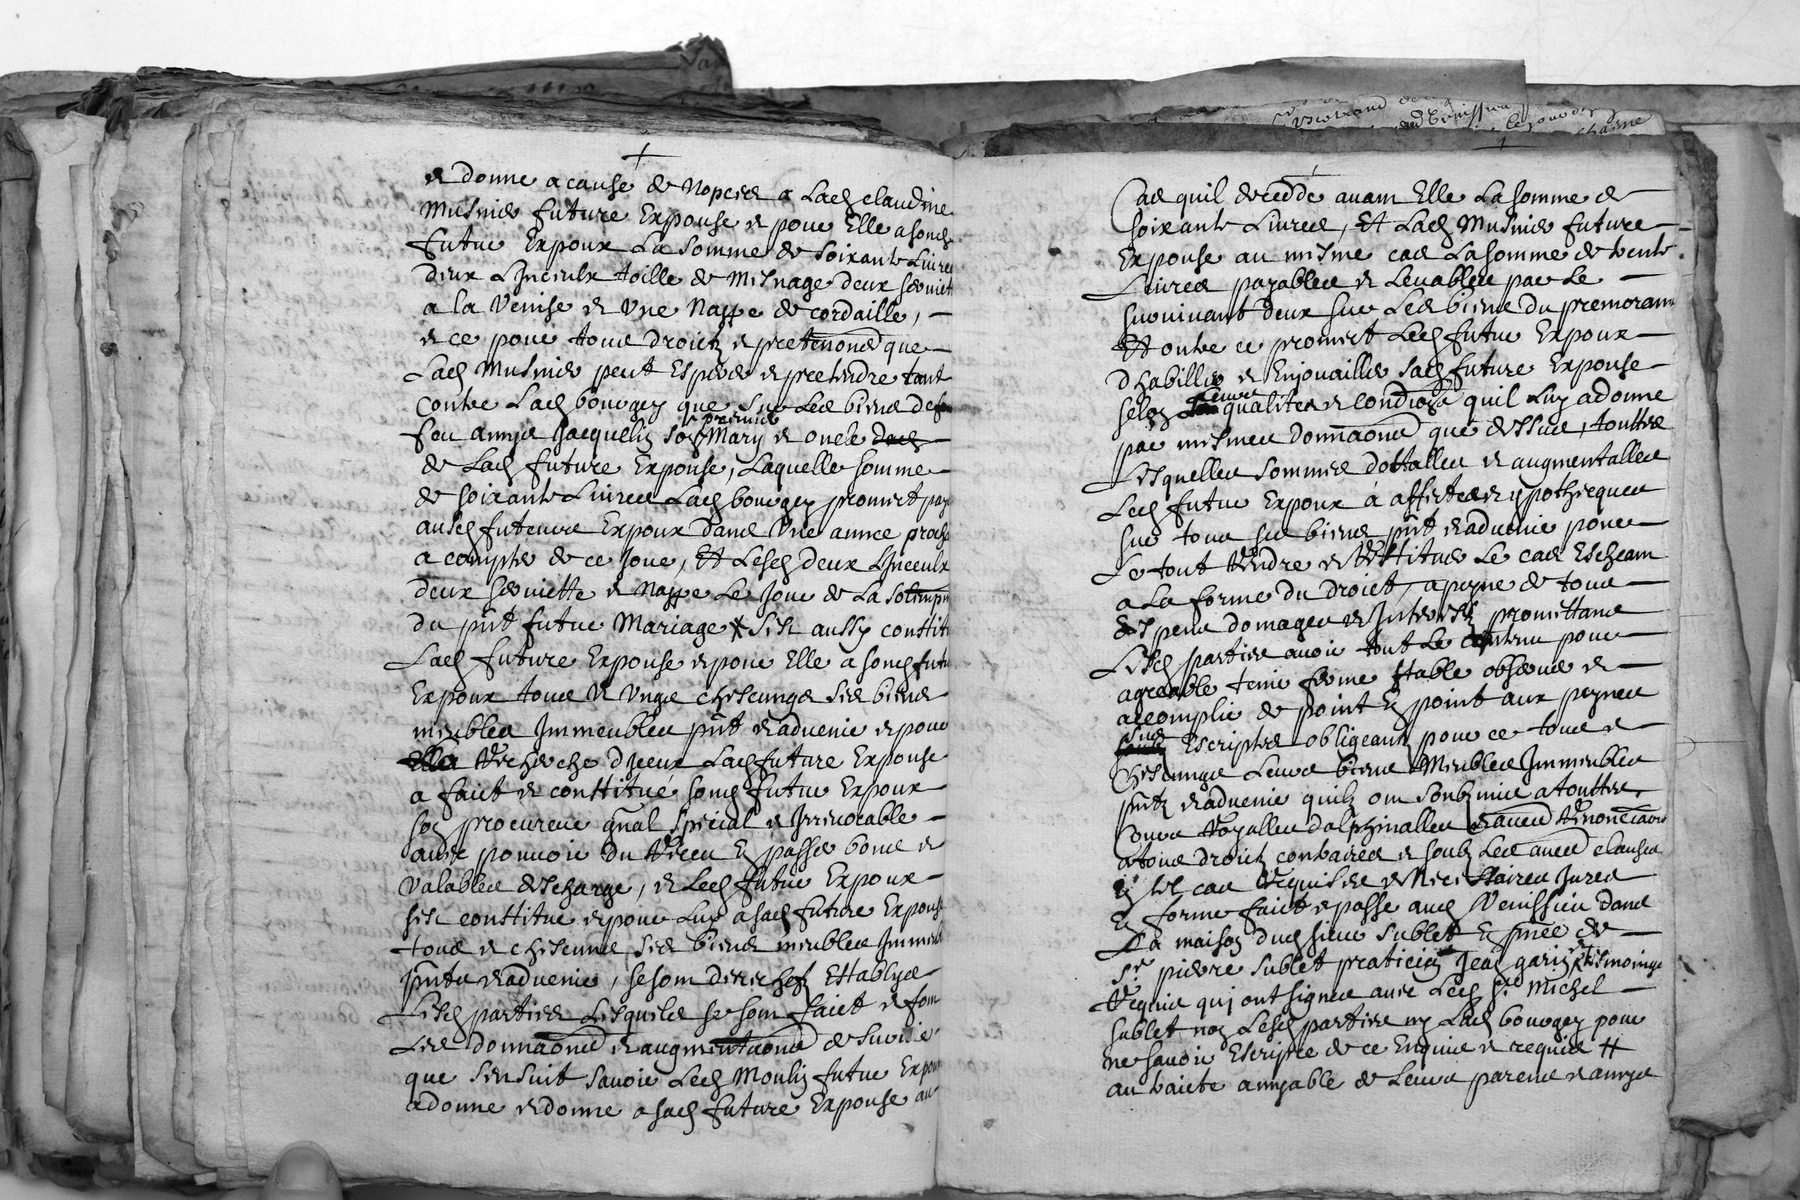 et donne a cause de nopces a Lad claudine
Musnier future Expouse et pour Elle a sond
futur Expoux La somme de soixante Livres
deux Linceulx toille de mesnage deux serviet
a la Venise et Une Nappe de cordaille,
et ce pour tous droictz et pretentions que
Lad Musnier peut Esperer et pretendre tant
contre Lad bourgey que sur Les biens de feu
feu annye Jacquelin son premier Mary et oncle
de Lad future Expouse, Laquelle somme
de soixante Livres Lad bourgey promect pay
ausd futeurs Expoux dans Une annee proch
a compter de ce Jour, Et Lesd deux Linceulx
deux serviette et Nappe Le Jour de La solempn
du pnt futur Mariage Sest aussy constit
Lad future Expouse et pour Elle a sond futu
Expoux tous et Ungs chescungs ses biens
meubles Immeubles pnt et advenir et pour
Recherche diceux Lad future Expouse
a faict et constitué sond futur Expoux
son procureur gnal special et Irrevocable
avec pouvoir du Receu En passer bonne et
valables descharge, et Led futur Expoux
sest constitue et pour Luy a sad future Expouse
tous et chescuns ses biens meubles Immeu
pnts et advenir, se sont derechefz Establyes
Lesd parties Lesquelles se sont faict et font
Les donnaons et augmentaons de survie
que sensuit savoir Led Moulin futur Expoux
a donne et donne a sad future Expouse au
Cas quil decedde avant Elle La somme de
soixante Livres, Et Lad Musnier future
Expouse au mesme cas La somme de trente
Livres payables et Levables par Le
survivant deux sur Les biens du premorant
Et oultre ce promect Led futur Expoux
dhabiller et Enjouailler sad future Expouse
selon leurs qualites et condiôn quil Luy a donne
par mesmes donnaons que dessus, touttes
Lesquelles sommes dottalles et augmentalles
Led futur Expoux à affectes et ypothecques
sur tous ses biens pnt et advenir pour
Le tout Rendre et Restituer Le cas Escheant
a La forme du droict, a peyne de tous
despens domages et Interestz promettans
Lesd parties avoir tout Le contenu pour
agreable tenir ferme stable observer et
accomplir de point En point aux peynes
sus Escriptes obligeantz pour ce tous et
Chescungs Leurs biens Meubles Immeubles
pntz et advenir quilz ont soubzmis a touttes
Cours Royalles dalphinalles et avec Renonciaons
a tous droictz contraires et soubz Les aultres clauses
En tel cas Requises et Necessaires Jures
En forme faict et passe aud Venissieu dans
La maison dud sieur sublet En pnce de
sr pierre sublet praticien Jean garin tesmoings
Requis qui ont signes avec Led sr Michel
sublet non Lesd parties ny Lad bourgey pour
ne savoir Escripre de ce Enquis et requis #
au traicte amyable de Leurs parens et amys